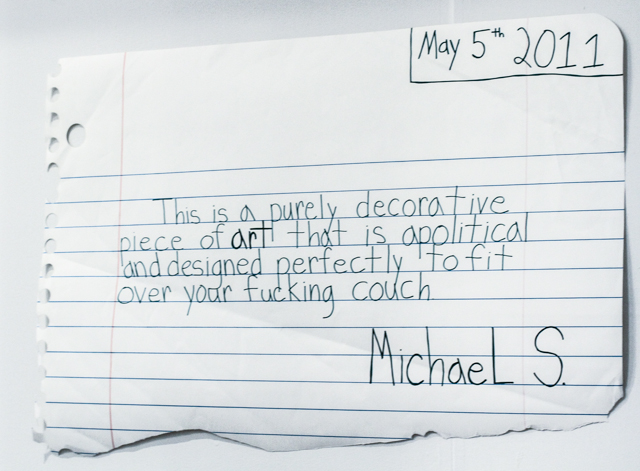 May 5th 2011
This is a purely decorative
piece of art that is apolitical
and designed perfectly to fit
over your fucking couch
Michael S.